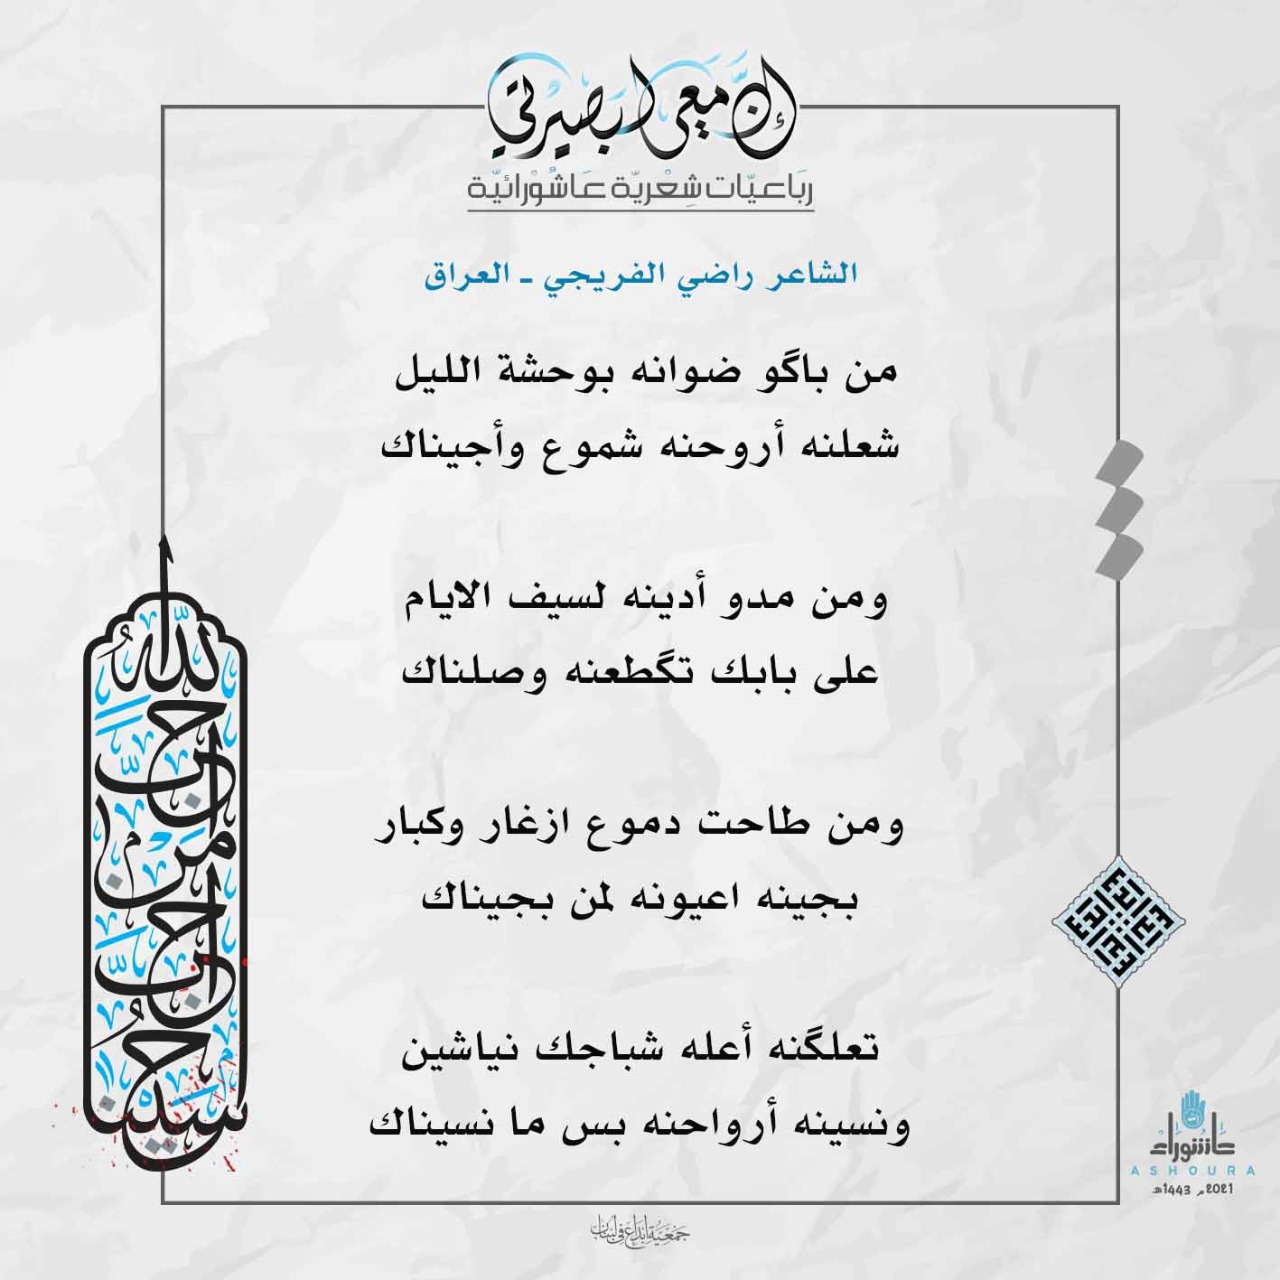 إنّ معي لبصيرتي
رباعيّات شِعْريّة عَاشُوْرائيّة
الشاعر راضي الفريجي ـ العراق
من باگو ضوانه بوحشة الليل
شعلنه أروحنه شموع وأجيناك
ومن مدو أدينه لسيف الايام
على بابك تگطعنه وصلناك
ومن طاحت دموع ازغار وكبار
بجينه اعيونه لمن بجيناك
تعلگنه أعله شباجك نياشين
ونسينه أرواحنه بس ما نسيناك
أحبّ الله من أحبّ حسينا
عاشوراء
ASHOURA
2021م 1443هـ
جمعية إبداع في لبنان